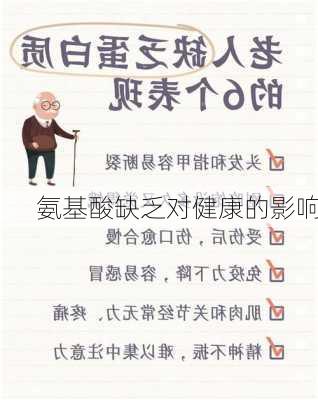 老人缺乏蛋白质
的6个表现
头发和指甲容易断裂
氨基酸缺乏对健康的影响
受伤后，伤口愈合慢
免疫力下降，容易感冒
肌肉和关节经常无力、疼痛
精神不振，难以集中注意力